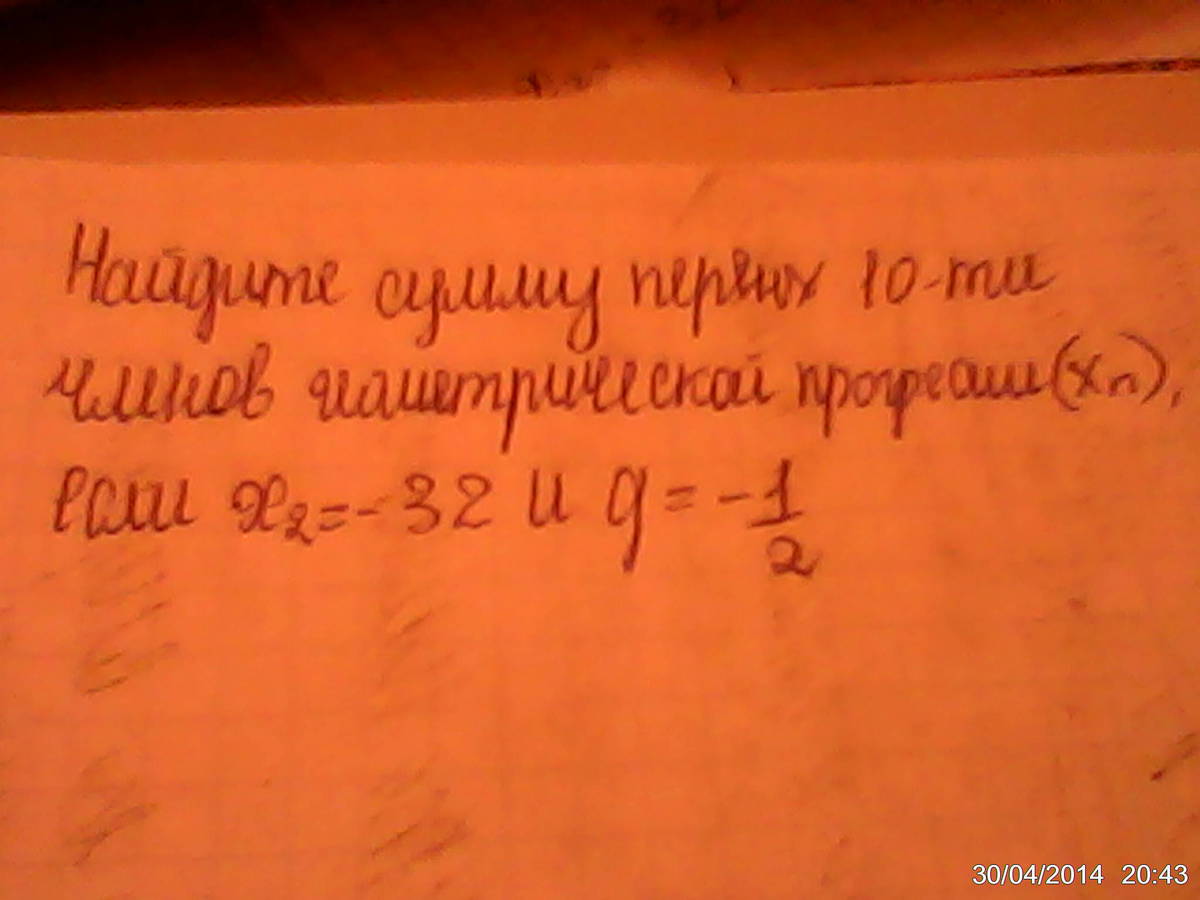 Найдите сумму первых 10-ти
членов геометрической прогрессии (xn),
если x₂=-32 и q=-1/2
30/04/2014 20:43